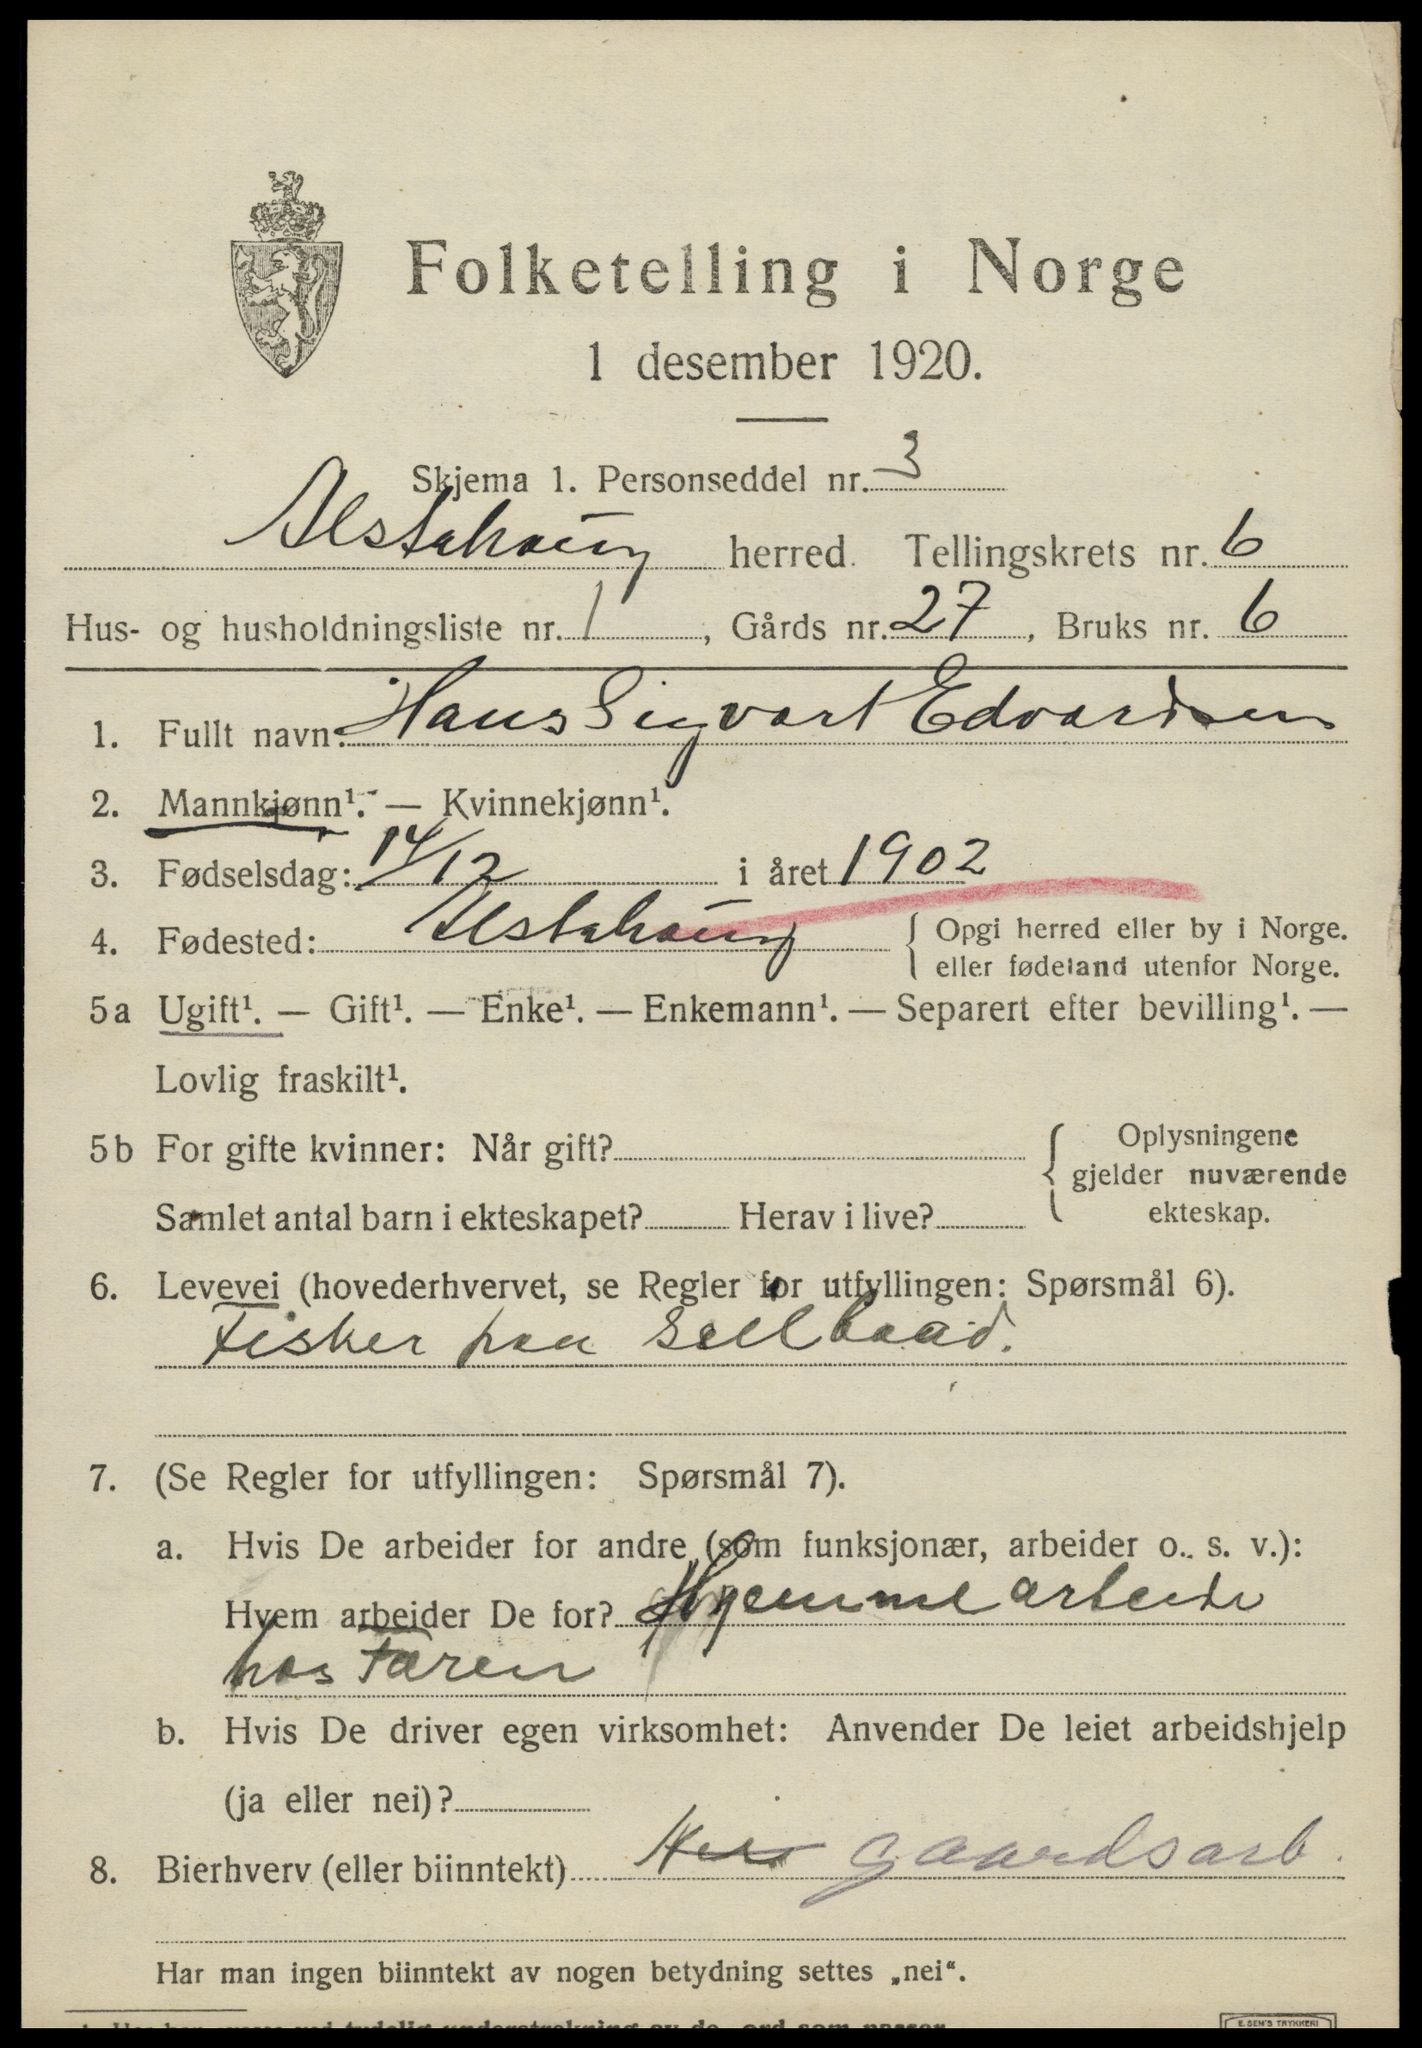 Folketelling i Norge
1 desember 1920.
Skjema 1. Personseddel nr. 3
Alstahaug herred. Tellingskrets nr. 6
Hus- og husholdningsliste nr. 1, Gårds nr. 27, Bruks nr. 6
1. Fullt navn: Hans Sigvart Edvardsen
2. Mannkjønn¹. — Kvinnekjønn¹.
3. Fødselsdag: 14/12 i året 1902
4. Fødested: Alstahaug { Opgi herred eller by i Norge.
eller fødeland utenfor Norge.
5a Ugift¹. — Gift¹. — Enke¹. — Enkemann¹. — Separert efter bevilling¹. —
Lovlig fraskilt¹.
5b For gifte kvinner: Når gift? { Oplysningene
gjelder nuværende
ekteskap.
Samlet antal barn i ekteskapet? Herav i live?
6. Levevei (hovederhvervet, se Regler for utfyllingen: Spørsmål 6).
Fisker paa Seilbaad.
7. (Se Regler for utfyllingen: Spørsmål 7).
a. Hvis De arbeider for andre (som funksjonær, arbeider o. s. v.):
Hvem arbeider De for? Hjemmearbeide
hos Faren
b. Hvis De driver egen virksomhet: Anvender De leiet arbeidshjelp
(ja eller nei)?
8. Bierhverv (eller biinntekt) gaardsarb.
Har man ingen biinntekt av nogen betydning settes „nei“.
E. SEM'S TRYKKERI